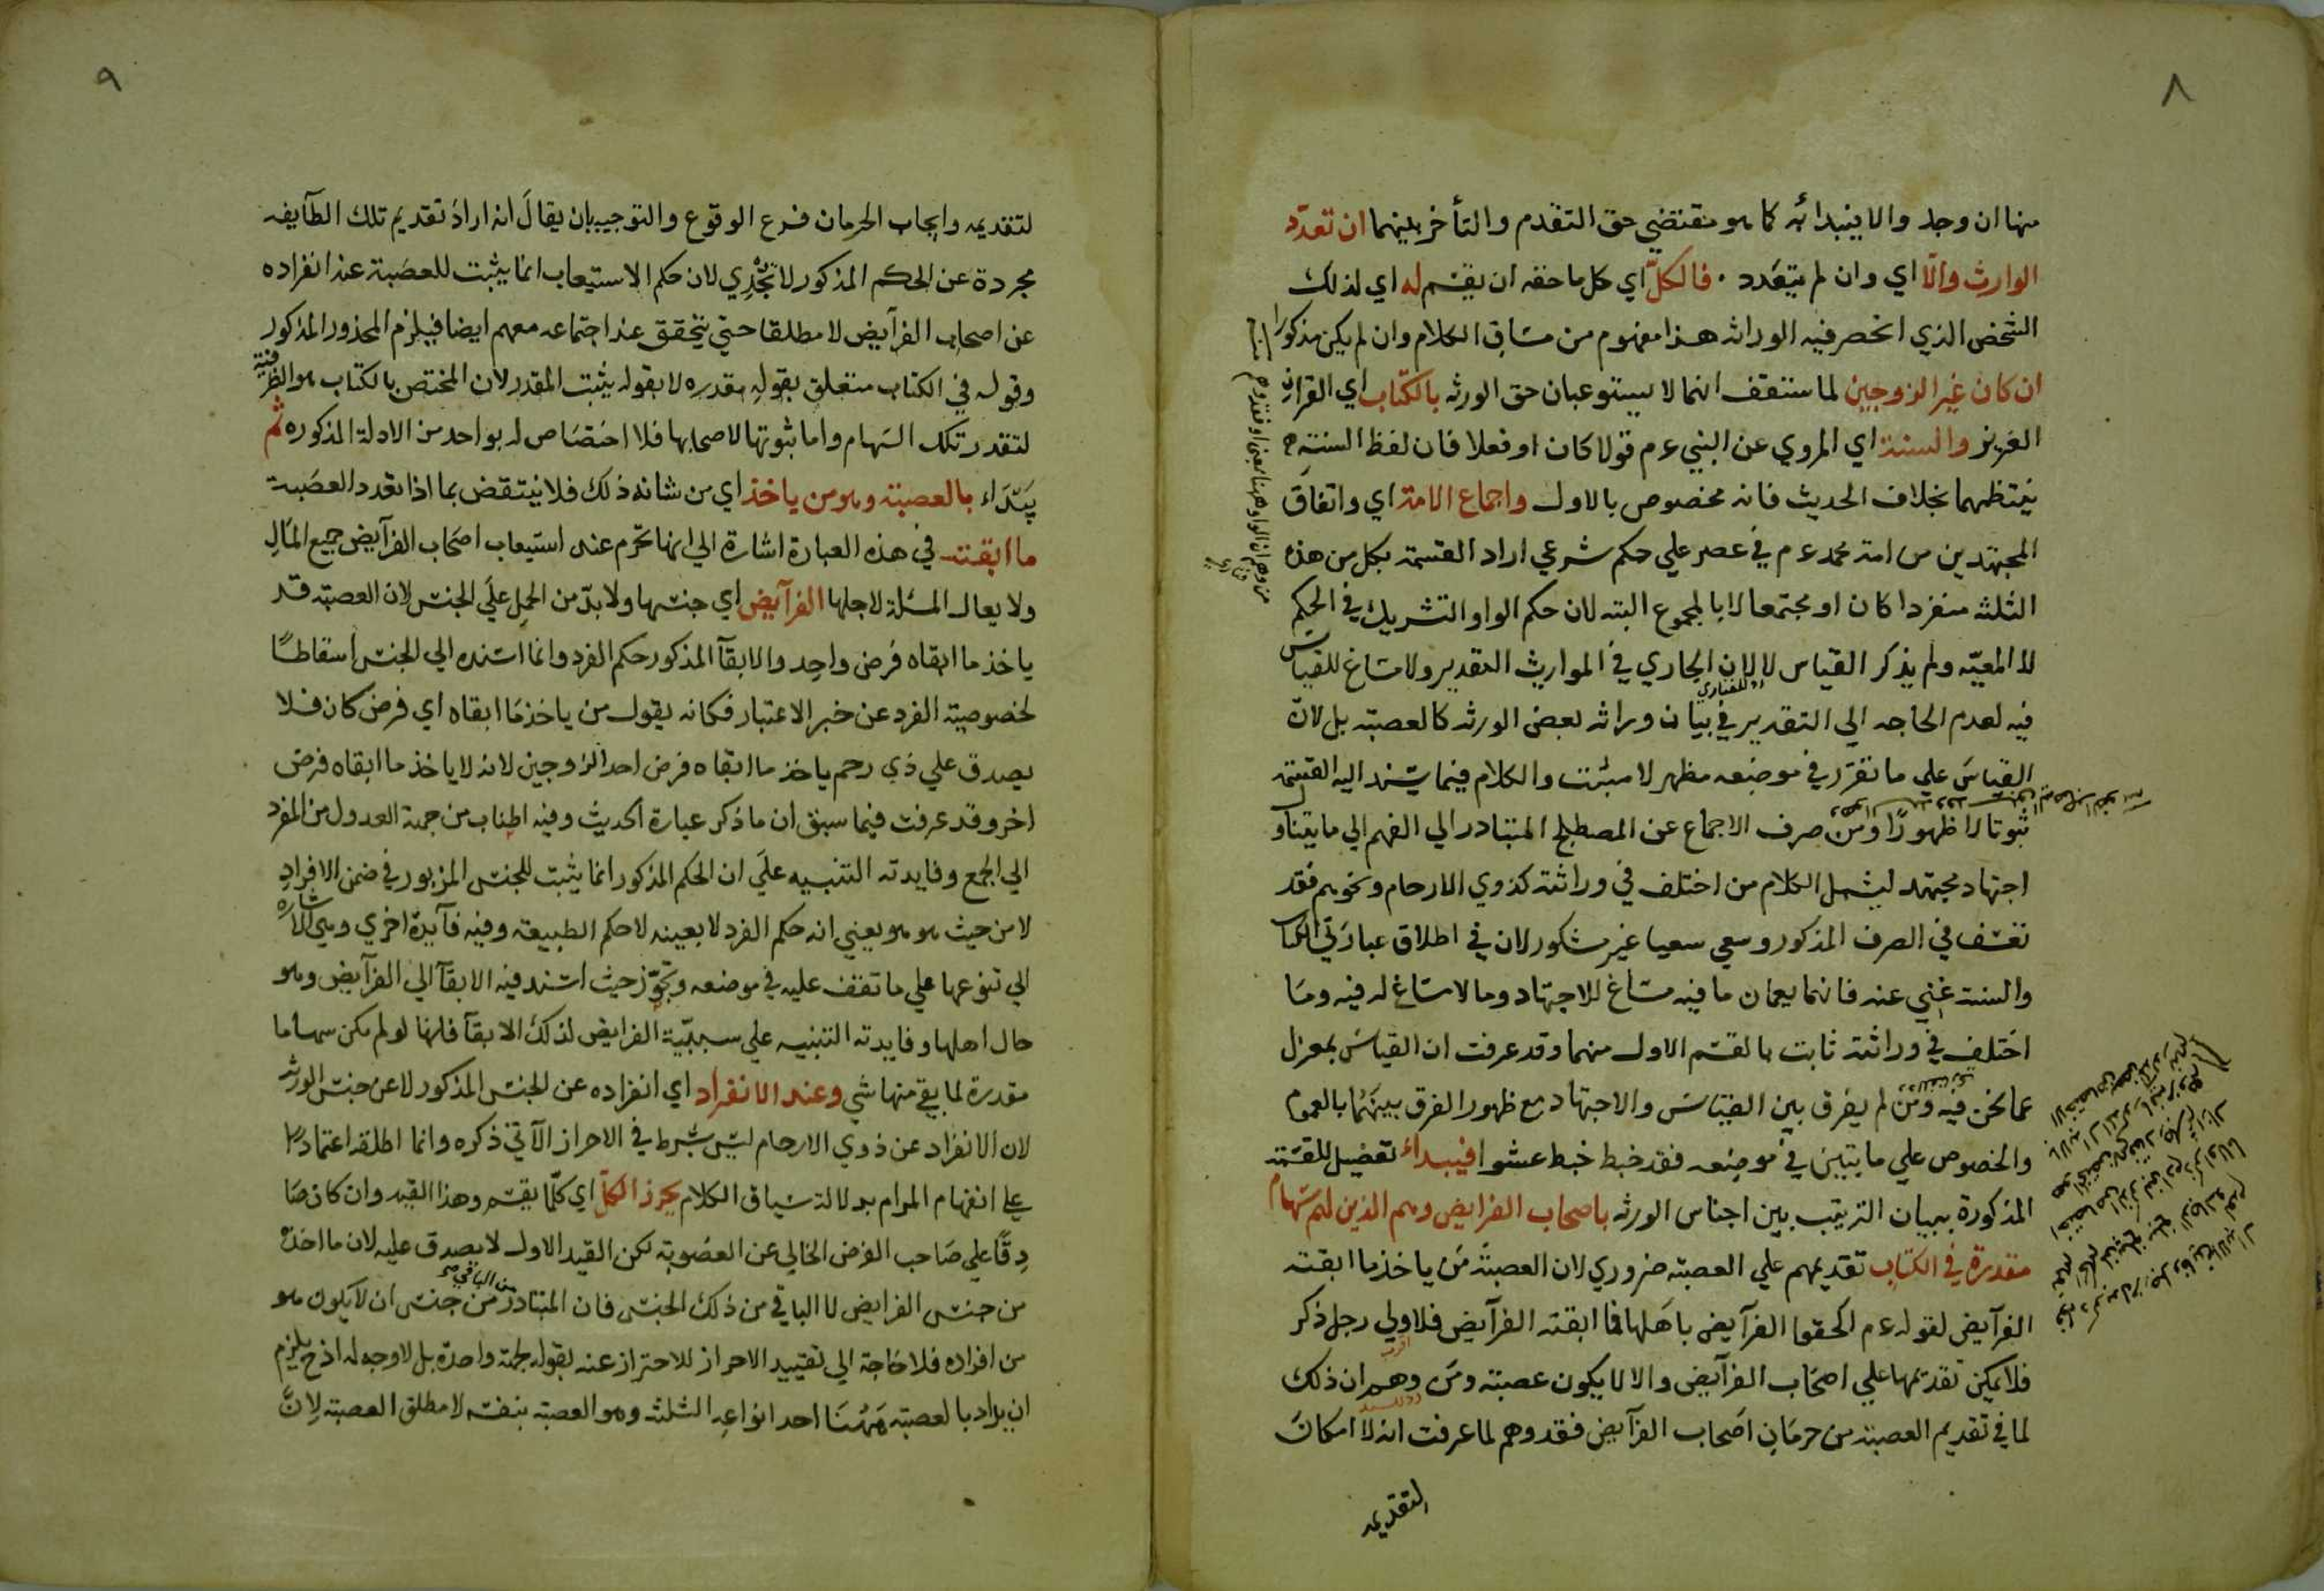 ٨
منها ان وجد والا يبتدائه كما هو مقتضى حق التقدم والتأخر بينهما ان تعدّد
الوارث والّا اي وان لم يتعدد . فالكلّ اي كل ما حقه ان يقسم له اي لذلك
الشخص الذي انحصر فيه الوراثه هذا مفهوم من مساق الكلام وان لم يكن مذكورا
ان كان غير الزوجين لما ستقف انهما لا يستوعبان حق الورثه بالكتاب اي القران
العزيز والسنة اي المروي عن النبي ءم قولا كان او فعلا فان لفظ السنة
ينتظمهما بخلاف الحديث فانه مخصوص بالاول واجماع الامة اي واتفاق
المجتهدين من امة محمد ءم في عصر علي حكم شرعي اراد القسمة بكل من هذه
الثلثه منفردا كان او مجتمعا لا بالمجموع البته لان حكم الواو التشريك في الحكم
لا المعيّه ولم يذكر القياس لا لان الجاري في المواريث التقدير ولا مساغ للقياس
فيه لعدم الحاجه الي التقدير في بيان وراثه بعض الورثه كالعصبة بل لانّ
القياس علي ما تقرر في موضعه مظهر لا مثبت والكلام فيما يسند اليه القسمة
ثبوتا لا ظهورًا ومن صرف الاجماع عن المصطلح المتبادر الي الفهم الي ما يتناول
اجتهاد مجتهد ليشمل الكلام من اختلف في وراثته كذوي الارحام ونحوهم فقد
تعسف في الصرف المذكور وسعي سعيا غير مشكور لان في اطلاق عبارتي الكتاب
والسنة غني عنه فانهما يعمان ما فيه مساغ للاجتهاد وما لا مساغ له فيه وما
اختلف في وراثته ثابت بالقسم الاول منهما وقد عرفت ان القياس بمعزل
عما نحن فيه ومن لم يفرق بين القياس والاجتهاد مع ظهور الفرق بينهما بالعموم
والخصوص علي ما يتبين في موضعه فقد خبط خبط عشوا فيبداء تفضيل للقسمة
المذكورة ببيان الترتيب بين اجناس الورثه باصحاب الفرايض وهم الذين لهم سهام
مقدرة في الكتاب تقديمهم علي العصبة ضروري لان العصبة من ياخذ ما ابقته
الفرآيض لقوله ءم الحقوا الفرآيض باهلها فما ابقته الفرآيض فلاولي رجل ذكر
فلا يمكن تقديمها علي اصحاب الفرآيض والا لا يكون عصبة ومن وهم ان ذلك
لما في تقديم العصبة من حرمان اصحاب الفرآيض فقد وهم لما عرفت انه لا امكان
لتقديمه
٩
لتقديمه وايجاب الحرمان فرع الوقوع والتوجيه بان يقال انه اراد تقديم تلك الطآيفه
مجردة عن الحكم المذكور لا تجدي لان حكم الاستيعاب انما يثبت للعصبة عند انفراده
عن اصحاب الفرآيض لا مطلقا حتي يتحقق عند اجتماعه معهم ايضا فيلزم المحذور المذكور
وقوله في الكتاب متعلق بقوله مقدره لا بقوله يثبت المقدر لان المختص بالكتاب هو الظرفية
لتقدر تلك السهام واما ثبوتها لاصحابها فلا اختصاص له بواحد من الادلة المذكوره ثم
يبتداء بالعصبة وهو من ياخذ اي من شانه ذلك فلا ينتقض بما اذا تعدد العصبة
ما ابقته في هذه العبارة اشارة الي انها تحرم عند استيعاب اصحاب الفرآيض جميع المال
ولا يعال المسئلة لاجلها الفرآيض اي جنسها ولا بدّ من الحمل علي الجنس لان العصبة قد
ياخذ ما ابقاه فرض واحد والابقآ المذكور حكم الفرد وانما اسنده الي الجنس اسقاطًا
لخصوصية الفرد عن خبر الاعتبار فكانه يقول من ياخذ ما ابقاه اي فرض كان فلا
يصدق علي ذي رحم ياخذ ما ابقاه فرض احد الزوجين لانه لا ياخذ ما ابقاه فرض
اخر وقد عرفت فيما سبق ان ما ذكر عبارة الحديث وفيه اطناب من جهة العدول من المفرد
الي الجمع وفايدته التنبيه علي ان الحكم المذكور انما يثبت للجنس المزبور في ضمن الافراد
لا من حيث هو هو يعني انه حكم الفرد لا بعينه لا حكم الطبيعة وفيه فآيدة اخري وهي الاشاره
الي تنوعها علي ما تقف عليه في موضعه وتجوّز حيث اسند فيه الابقآ الي الفرآيض وهو
حال اهلها وفايدته التنبيه علي سببيّة الفرايض لذلك الابقآ فانها لو لم يكن سهاما
مقدرة لما بقي منها شي وعند الانفراد اي انفراده عن الجنس المذكور لا عن جنس الورثه
لان الانفراد عن ذوي الارحام ليس بشرط في الاحراز الآتي ذكره وانما اطلقه اعتمادًا
علي انفهام المرام بدلالة سياق الكلام يحرز الكلّ اي كلّما يقسم وهذا القيد وان كان صا
دقًا علي صاحب الفرض الخالي عن العصوبة لكن القيد الاول لا يصدق عليه لان ما اخذه
من جنس الفرايض لا الباقي من ذلك الجنس فان المتبادر من الباقي من جنس ان لا يكون هو
من افراده فلا حاجة الي تقييد الاحراز للاحتراز عنه بقوله بجهة واحدة بل لا وجه له اذ ح يلزم
ان يراد بالعصبة ههنا احد انواعه الثلثه وهو العصبة بنفسه لا مطلق العصبة لانّ